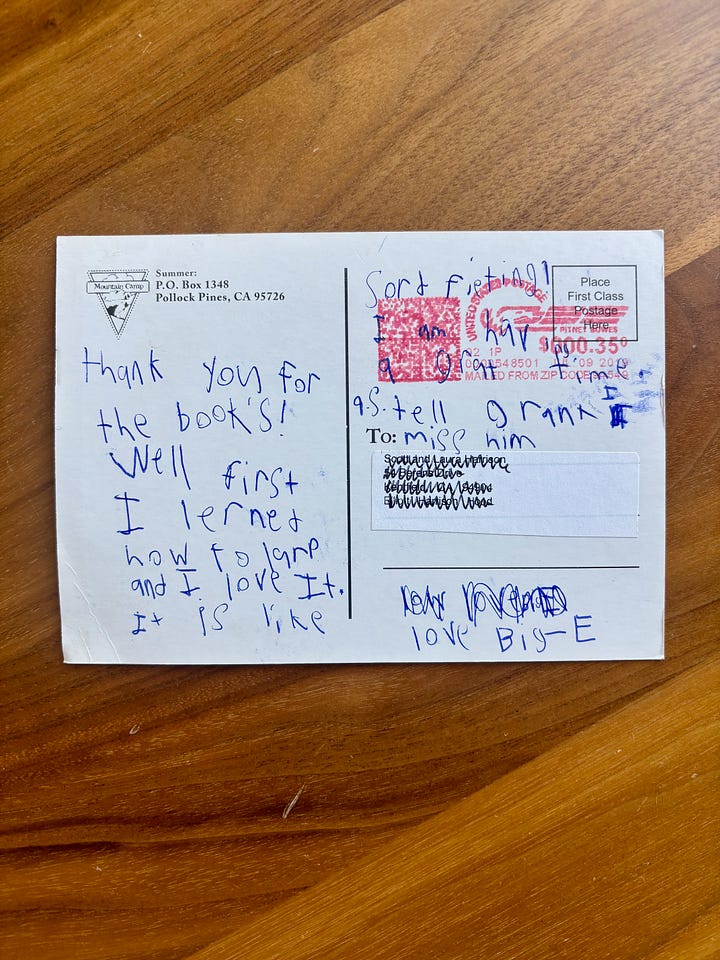 Mountain Camp
Summer:
P.O. Box 1348
Pollock Pines, CA 95726
thank you for
the book's!
Well first
I lernet
how to larp
and I love It.
It is like
Sord fieting!
I am hav
a Grat time.
P.S. tell
I
miss him
love Big-E
Place
First Class
Postage
Here
UNITED STATES POSTAGE
PITNEY BOWES
02 1P
$000.35⁰
JUL 09 2019
MAILED FROM ZIP CODE
To: